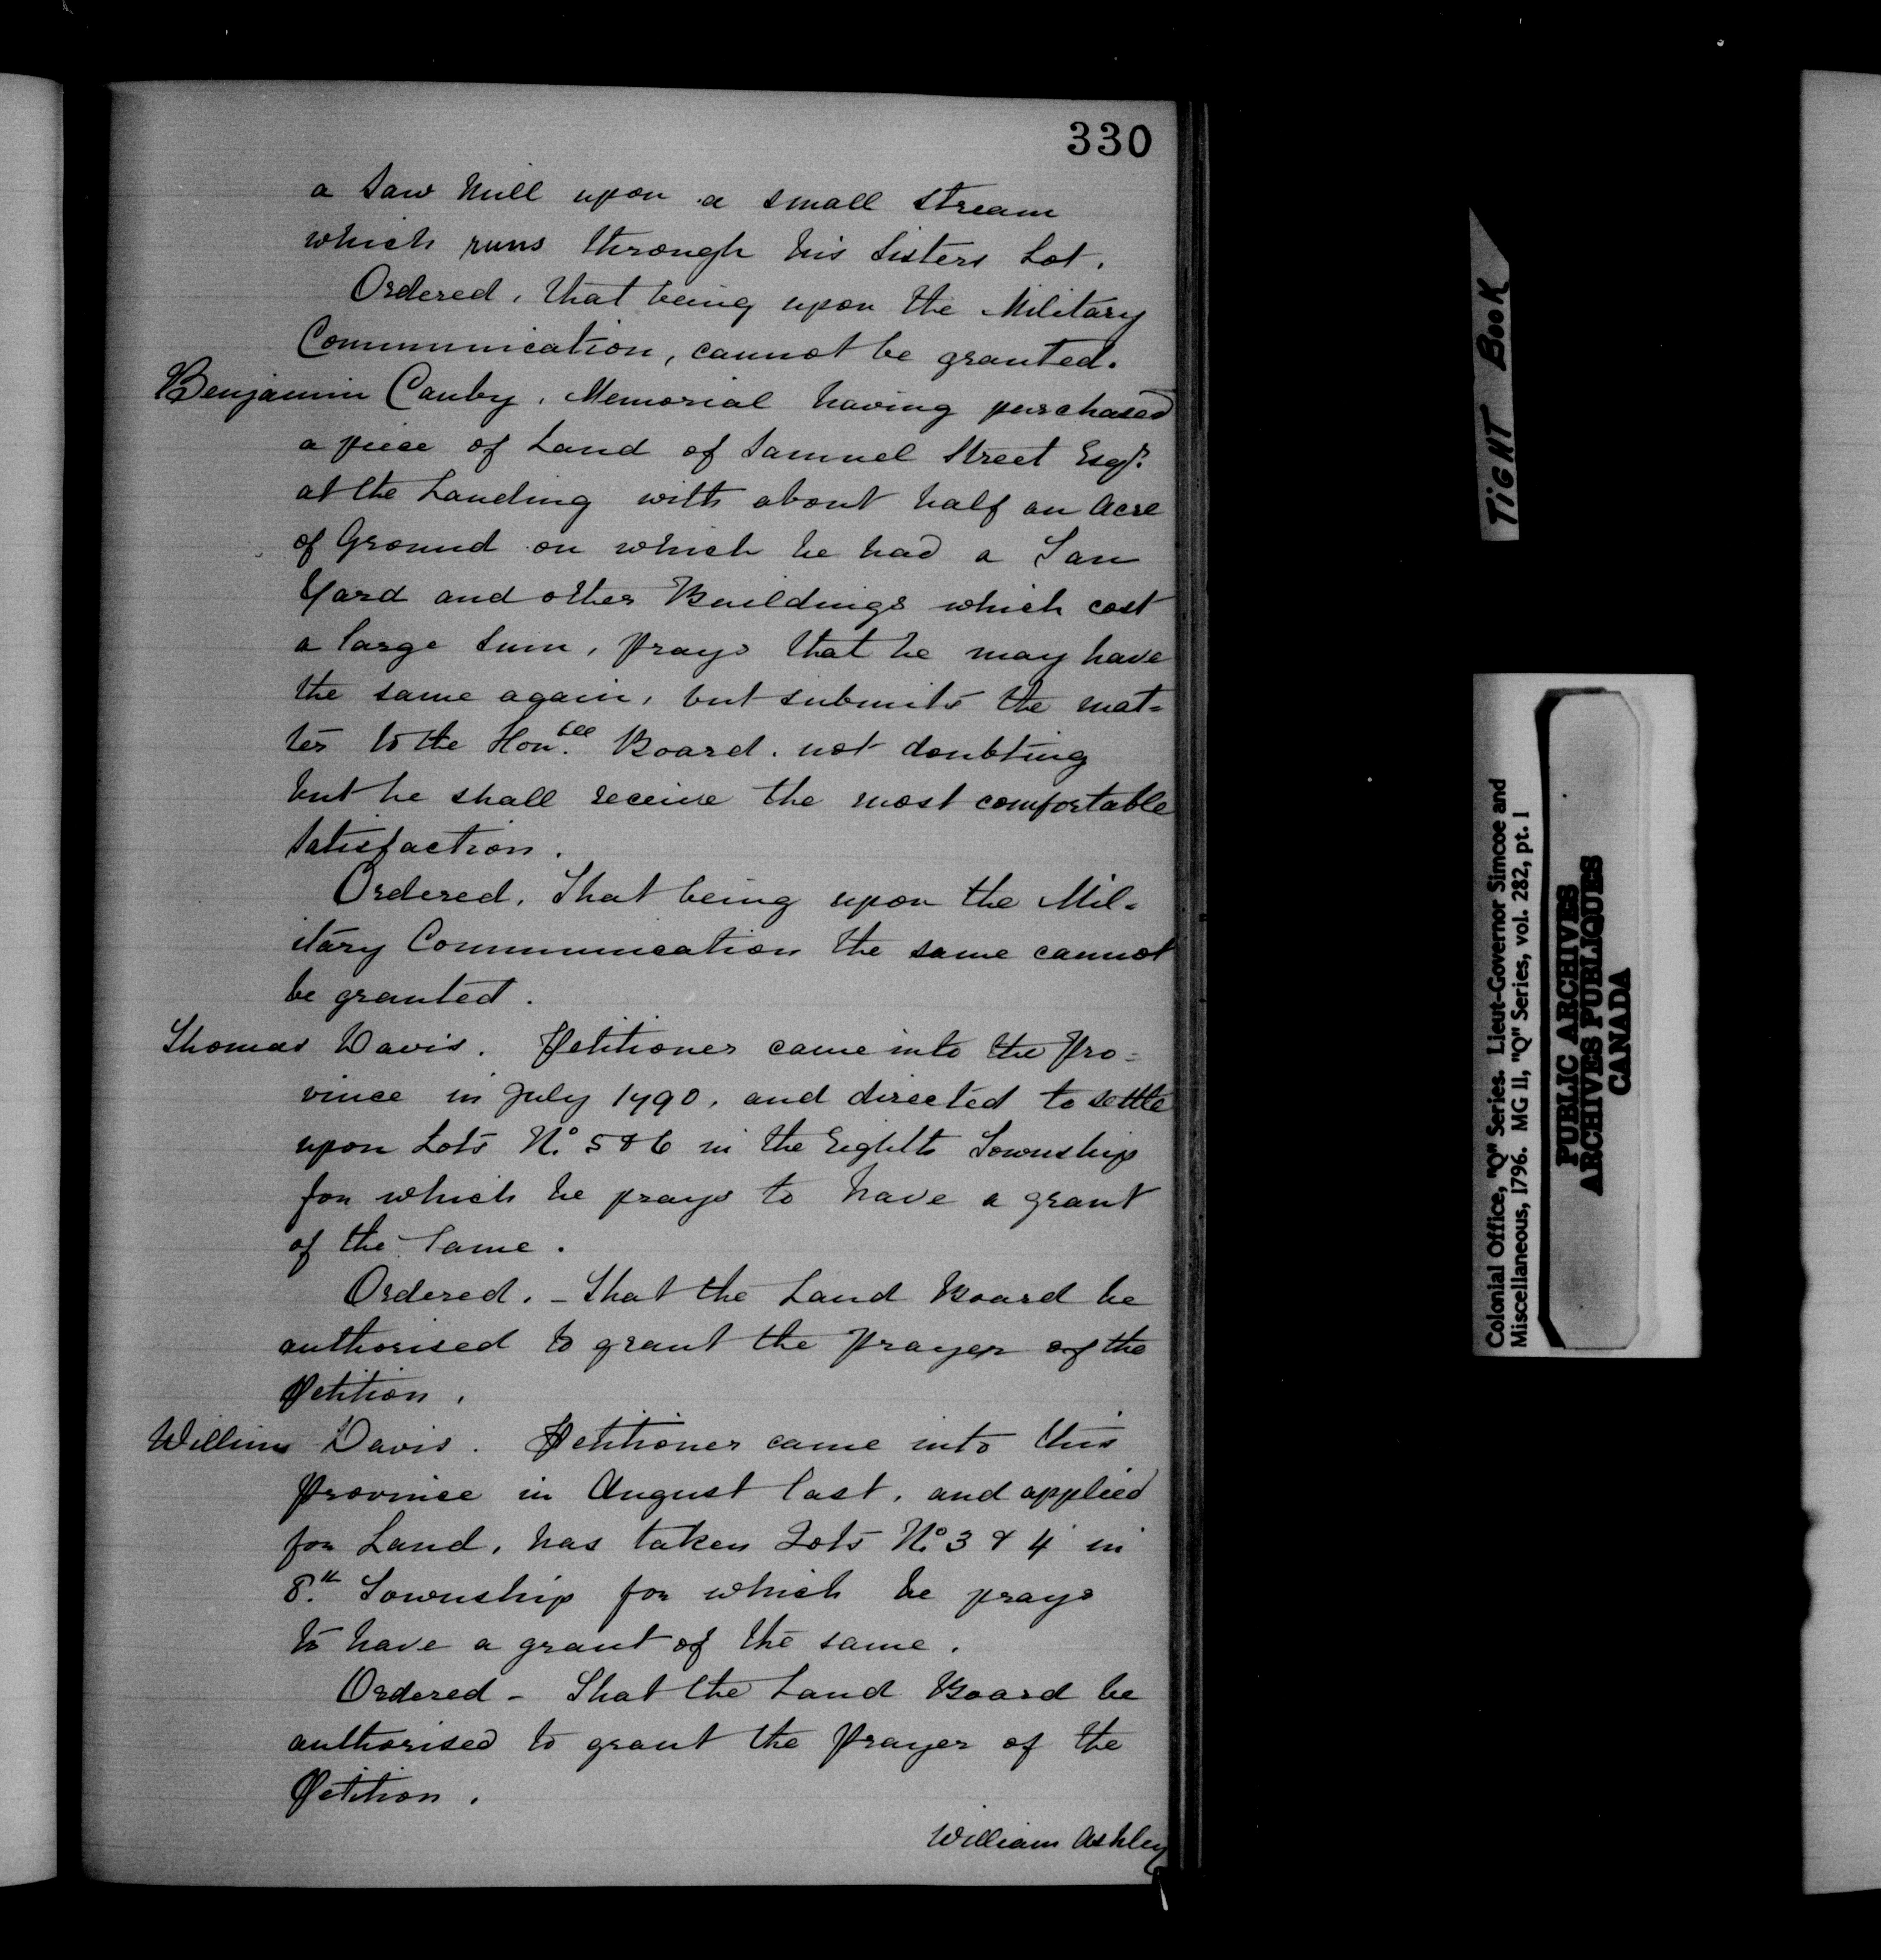 330
a Saw Mill upon a small stream
which runs through his Sisters Lot.
Ordered, that being upon the Military
Communication, cannot be granted.
Benjamin Canby. Memorial having purchased
a piece of Land of Samuel Street Esqr.
at the Landing with about half an Acre
of Ground on which he had a Tan
Yard and other Buildings which cost
a large Sum, prays that he may have
the same again, but submits the mat-
ter to the Honble. Board. not doubting
but he shall receive the most comfortable
Satisfaction.
Ordered, That being upon the Mil-
itary Communication the same cannot
be granted.
Thomas Davis. Petitioner came into the Pro-
vince in July 1790, and directed to settle
upon Lots No. 5 & 6 in the Eighth Township
for which he prays to have a grant
of the Same.
Ordered. - That the Land Board be
authorised to grant the Prayer of the
Petition.
William Davis. Petitioner came into this
Province in August last, and applied
for Land, has taken Lots No. 3 & 4 in
8.th Township for which he prays
to have a grant of the same.
Ordered - That the Land Board be
authorised to grant the Prayer of the
Petition.
William Ashley
TIGHT BOOK
Colonial Office, "Q" Series. Lieut-Governor Simcoe and
Miscellaneous, 1796. MG 11, "Q" Series, vol. 282, pt. 1
PUBLIC ARCHIVES
ARCHIVES PUBLIQUES
CANADA